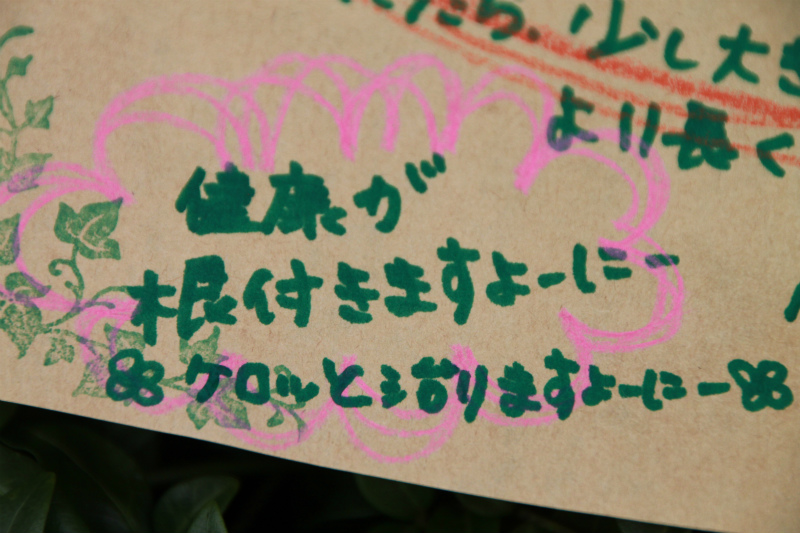 たら、少し大き
より長く
健康が
根付きますよーにー
ケロッと治りますよーにー